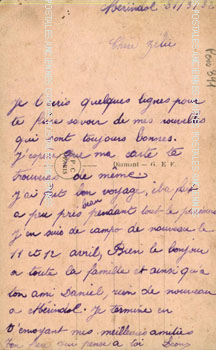 Mérindol 31/3/32
Cher
Je t'écris quelques lignes pour
te faire savoir de mes nouvelles
qui sont toujours bonnes.
J'espère que ma carte te
trouvera de même
Dumont — G. E. F.
J'ai fait bon voyage,
à peu près pendant tout le
bien
J'en suis de camp de nouveau le
11 et 12 avril, Bien le bonjour
a toute la famille et ainsi qua
ton ami Daniel, rien de nouveau
a Mérindol. Je termine en
t'envoyant mes meilleures amitiés
Ton qui pense a toi